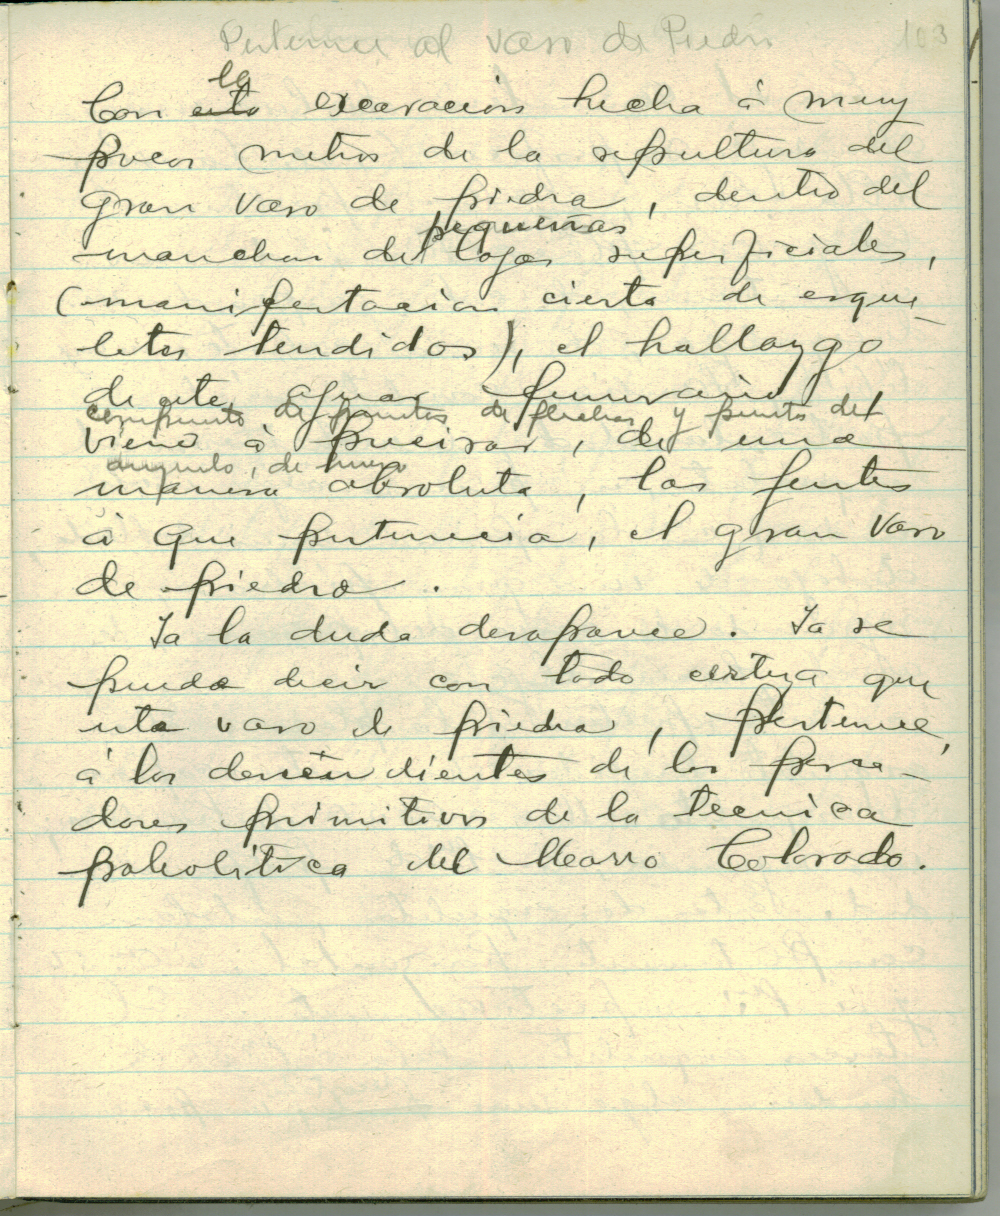 Pertenece al vaso de Piedra 103
la
Con esta excavación hecha á muy
pocos metros de la sepultura del
gran vaso de piedra, dentro del
pequeñas
manchon de lojas superficiales,
(manifestacion cierta de esque-
letos tendidos), el hallazgo
de este ajuar funerario
compuesto de puntas de flechas y punta del
viene á precisar, de una
anzuelo, de hueso
manera absoluta, las gentes
á que pertenecia, el gran vaso
de piedra.
Ya la duda desaparece. Ya se
puede decir con toda certeza que
este vaso de piedra, pertenece,
á los descendientes de los pesca-
dores primitivos de la tecnica
paleolitica del Morro Colorado.